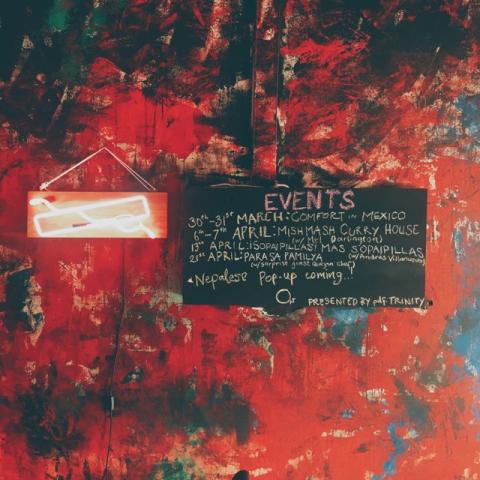 EVENTS
30th-31st MARCH: COMFORT IN MEXICO
6th-7th APRIL: MISHMASH CURRY HOUSE
(w/ Mel Darlington)
13th APRIL: ¡SOPAIPILLAS! MAS SOPAIPILLAS
21st APRIL: PARASA PAMILYA (w/ Andrés
(w/ surprise guest
Nepalese Pop-up coming...
PRESENTED BY TRINITY